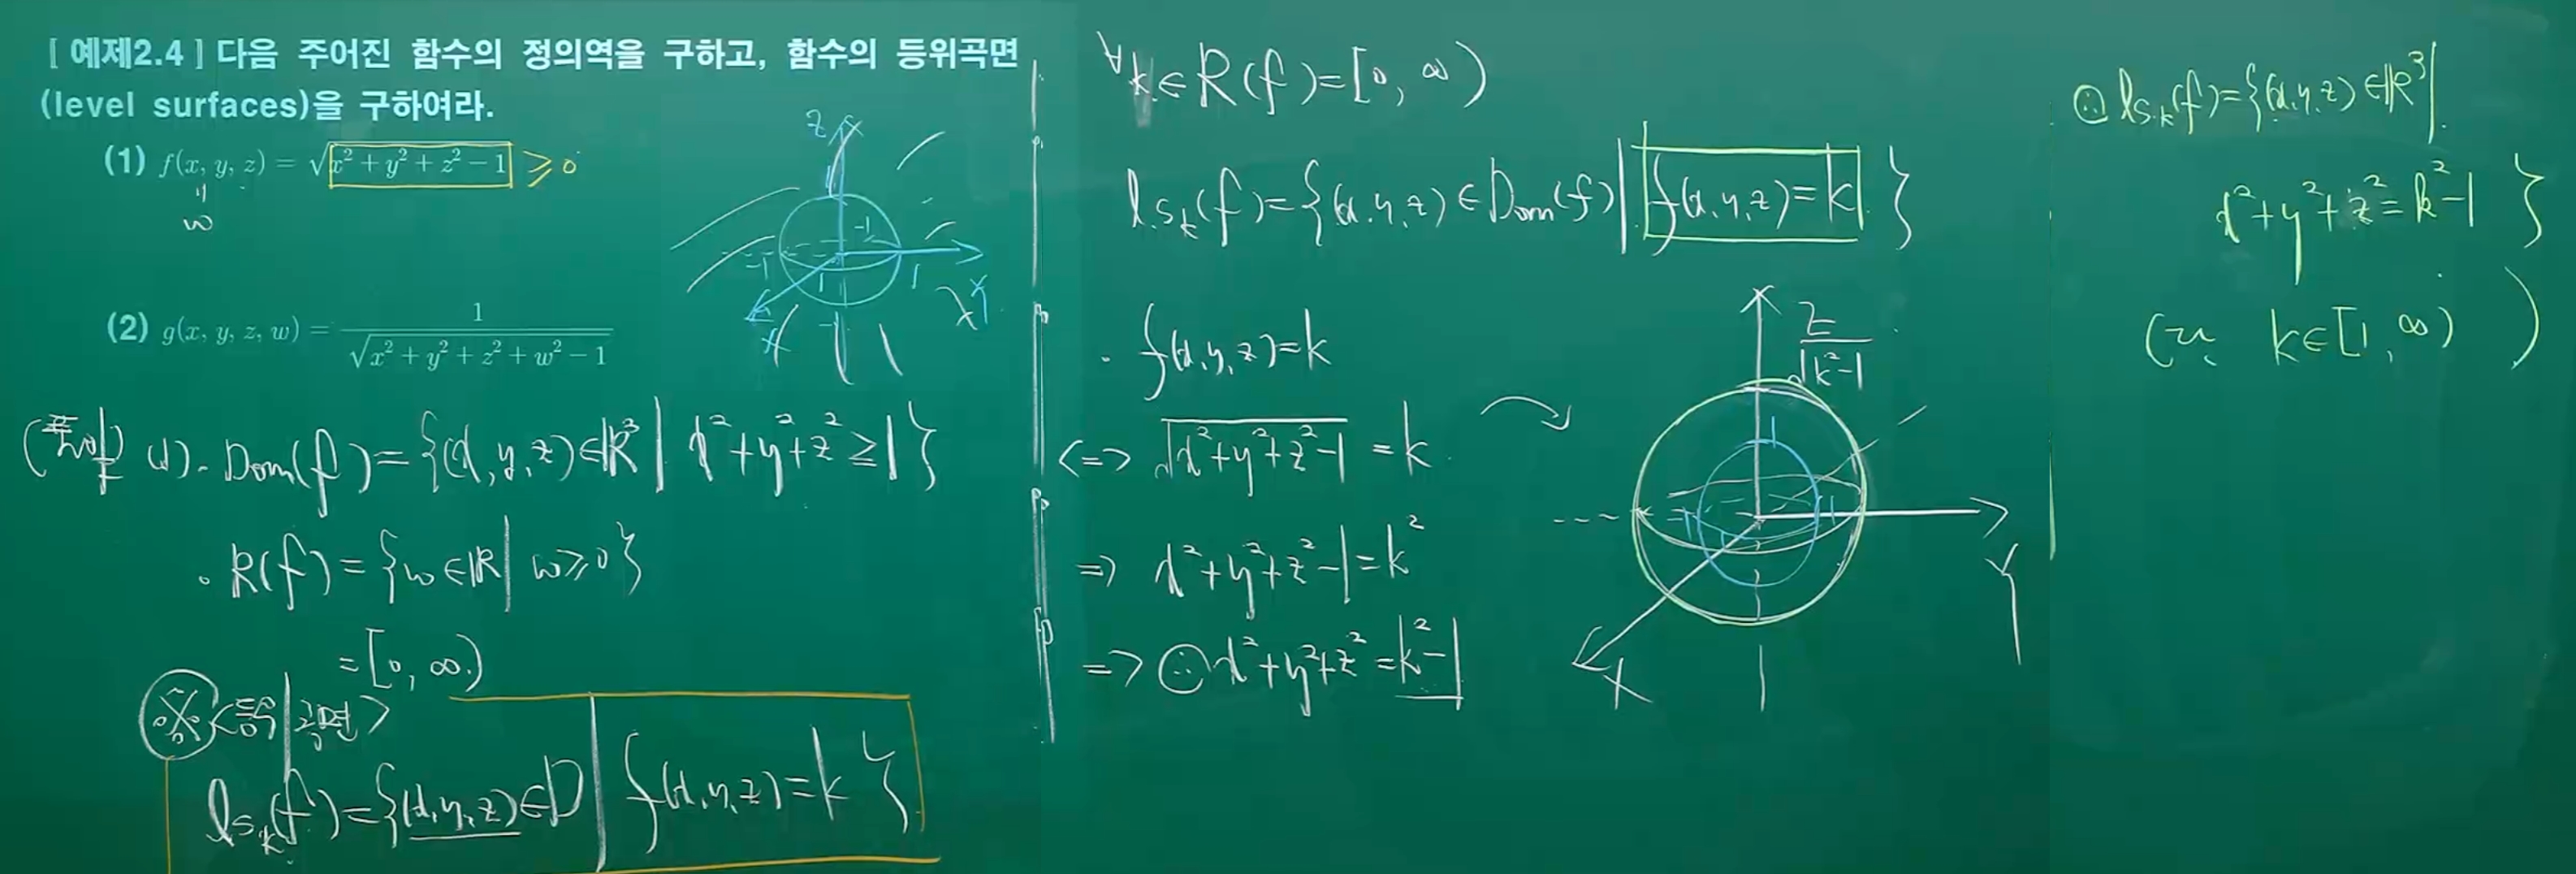 [ 예제2.4 ] 다음 주어진 함수의 정의역을 구하고, 함수의 등위곡면
(level surfaces)을 구하여라.
(1) f(x, y, z) = √(x² + y² + z² − 1) ≥ 0
w
(2) g(x, y, z, w) = 1 / √(x² + y² + z² + w² − 1)
Z
-1
-1
1
1
-1
Y
X
(풀이) (1). Dom(f) = {(x, y, z) ∈ ℝ³ | x² + y² + z² ≥ 1}
· R(f) = {w ∈ ℝ | w ≥ 0}
= [0, ∞)
※ <등위곡면>
l.s.ₖ(f) = {(x, y, z) ∈ D | f(x, y, z) = k}
∀k ∈ R(f) = [0, ∞)
l.s.ₖ(f) = {(x, y, z) ∈ Dom(f) | f(x, y, z) = k}
· f(x, y, z) = k
<=> √(x² + y² + z² − 1) = k
=> x² + y² + z² − 1 = k²
=> ∴ x² + y² + z² = k² − 1
Z
√(k² − 1)
1
-1
1
Y
X
∴ l.s.ₖ(f) = {(x, y, z) ∈ ℝ³ |
x² + y² + z² = k² − 1 }
( k ∈ [1, ∞) )